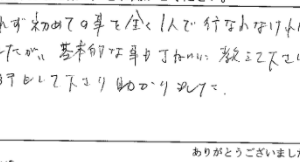 れず初めての事を全く1人で行なわなければ
したが、基本的な事もていねいに教えて下さ
して下さり助かりました。
ありがとうございまし